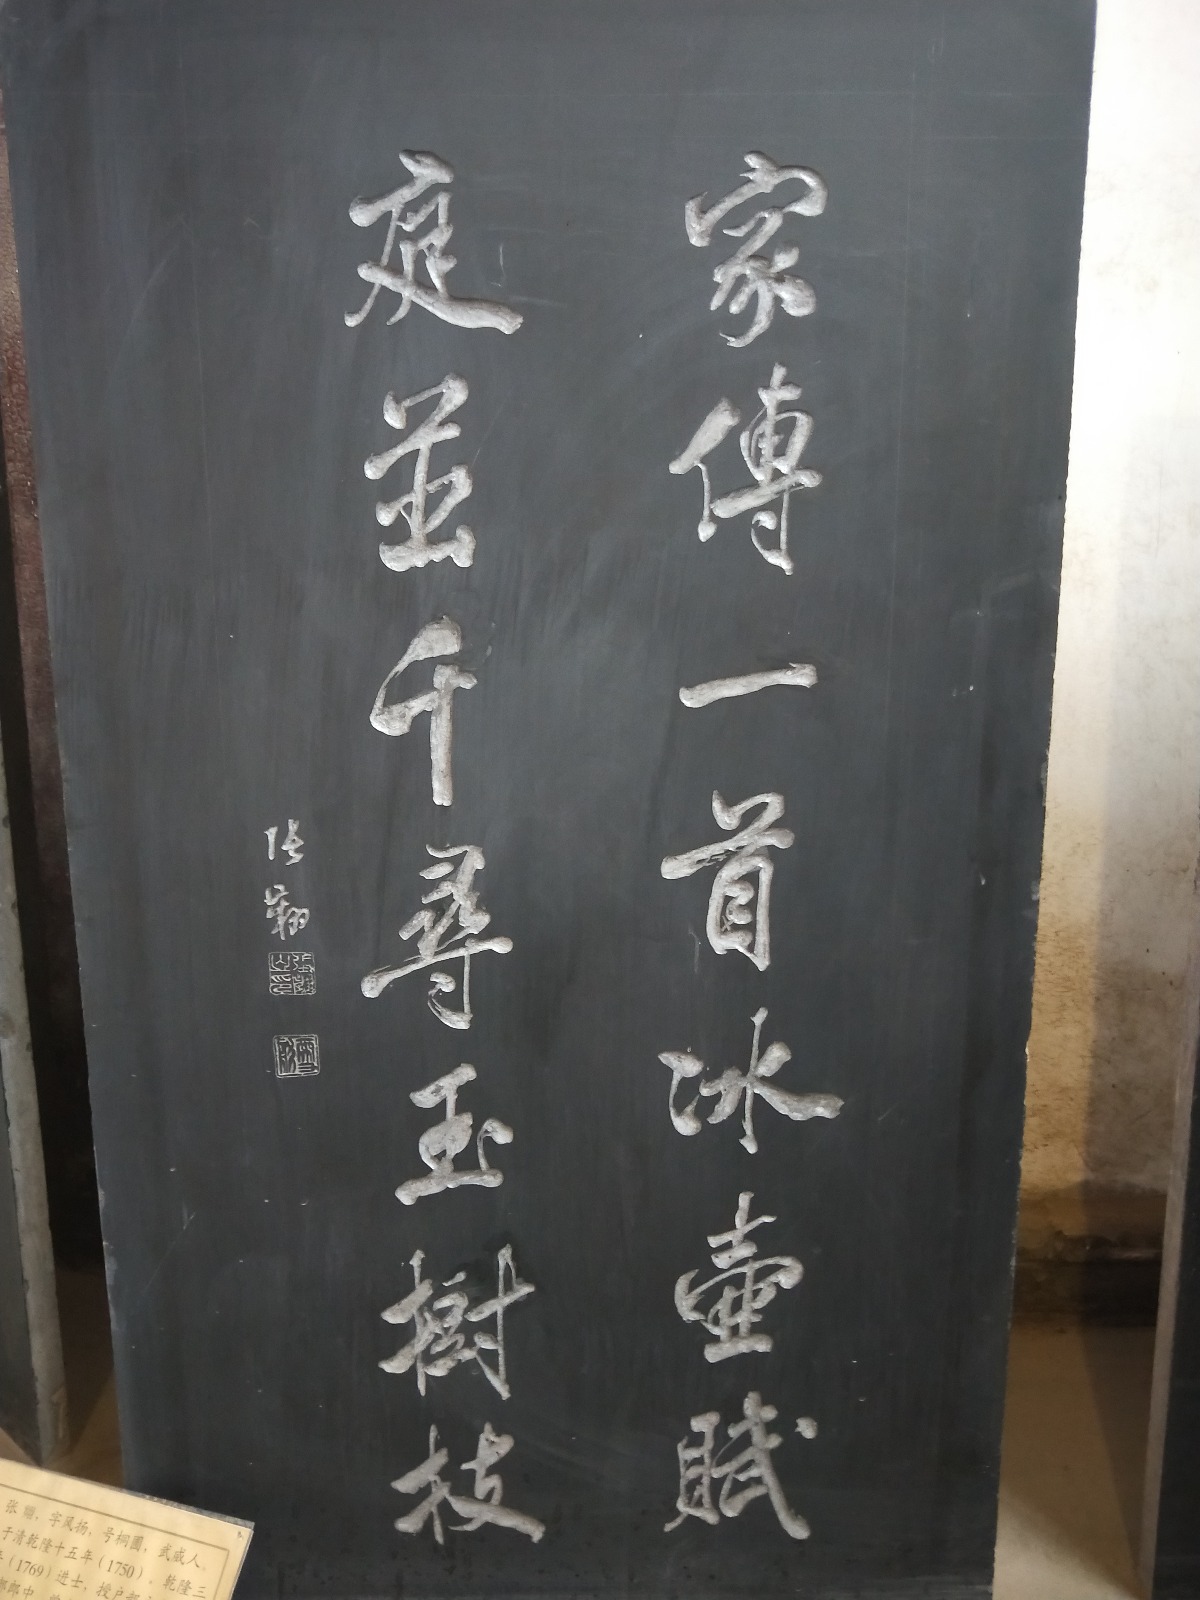 家傳一首冰壺賦
庭並千尋玉樹枝
张翽
张翽,字风扬,号桐圃,武威人。
于清乾隆十五年(1750)。乾隆三
(1769)进士,授户部
郎中